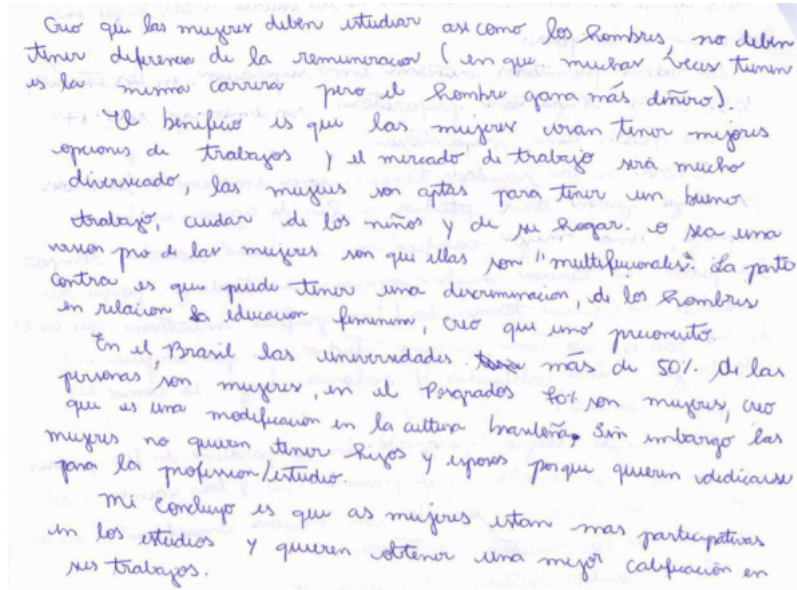 Creo que las mujeres deben estudiar asi como los hombres, no deben
tener diferencia de la remuneracion (en que muchas veces tienen
es la misma carrera pero el hombre gana más dinero).
El beneficio es que las mujeres van tener mejores
opciones de trabajos y el mercado de trabajo será mucho
diversicado, las mujeres son aptas para tener un bueno
trabajo, cuidar de los niños y de su hogar. o sea una
pro de las mujeres son que ellas son "multifucionales". La parte
contra es que puede tener una descrimunacion, de los hombres
en relacion la educacion femenina, creo que uno preconcito.
En el Brasil las universidades más de 50% de las
personas son mujeres, en el Posgrados 60% son mujeres, creo
que es una modificación en la cultura brasileña, Sin embargo las
mujeres no quieren tener hijos y esposos porque quieren dedicarse
para la profession/estudio.
Mi concluyo es que as mujeres estan mas participativas
en los estudios y quieren obtener una mejor calificación en
sus trabajos.